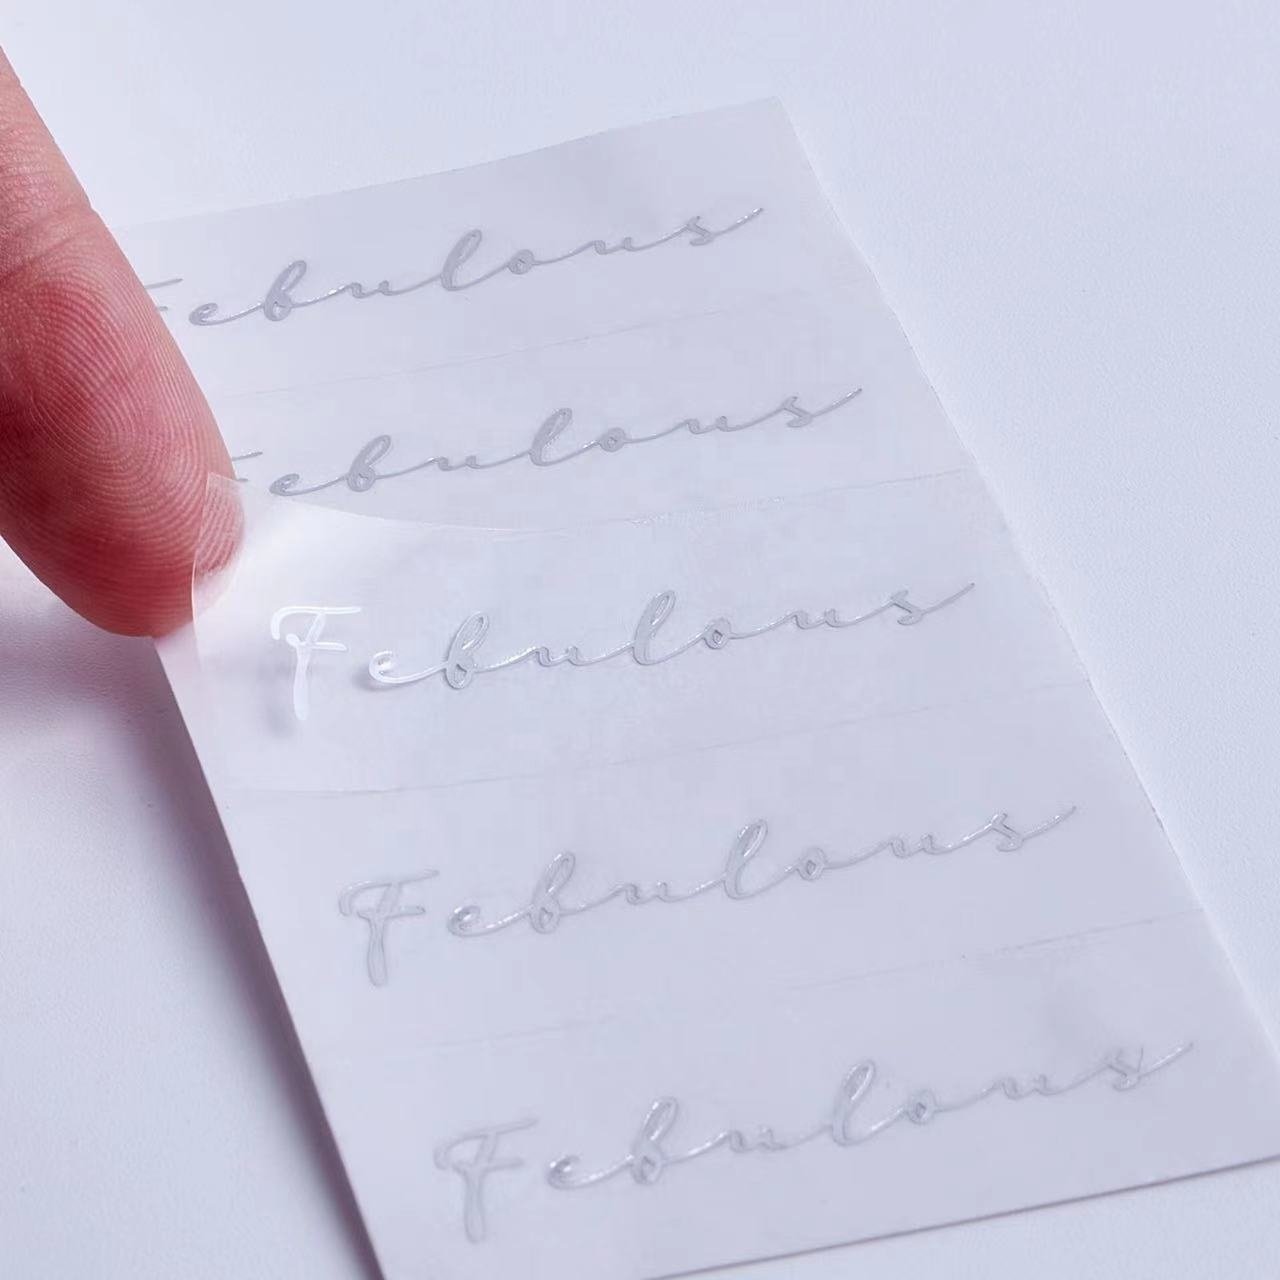 Febulous
Febulous
Febulous
Febulous
Febulous